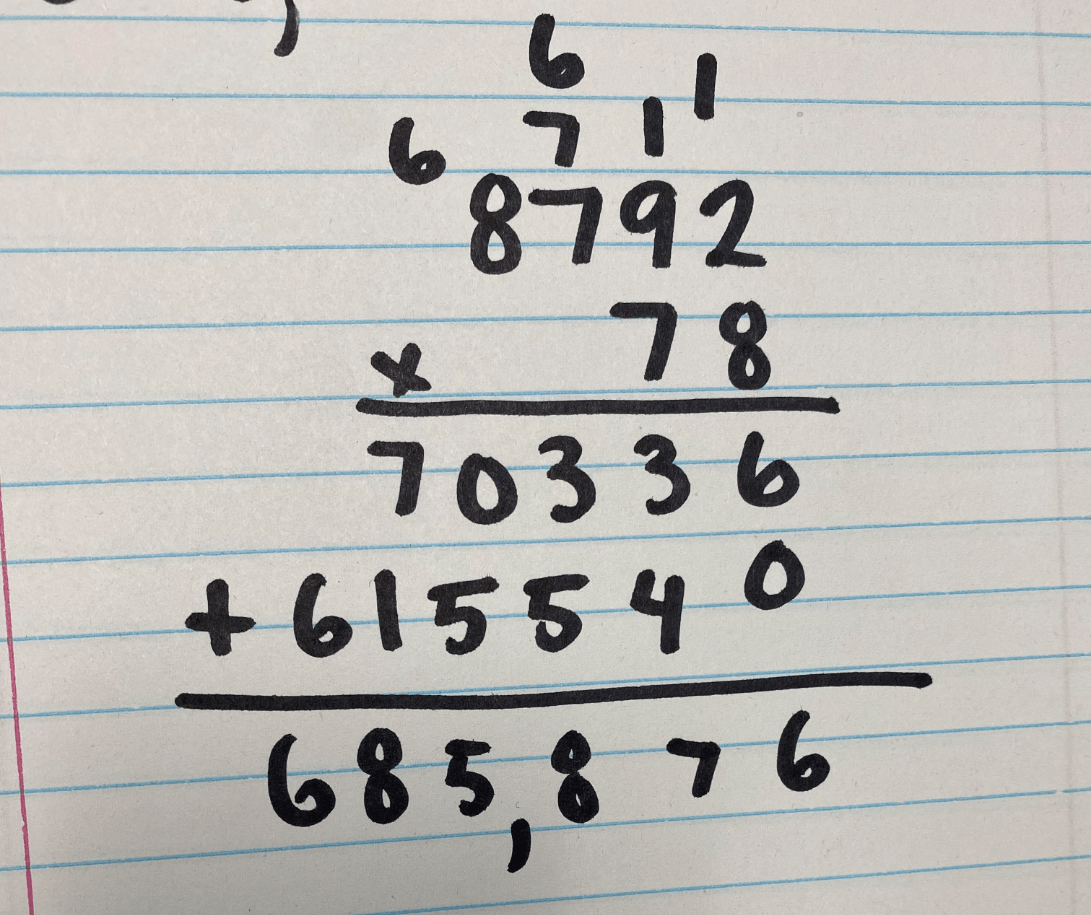 6 1
6 7 1
8792
x 78
70336
+ 615540
685,876